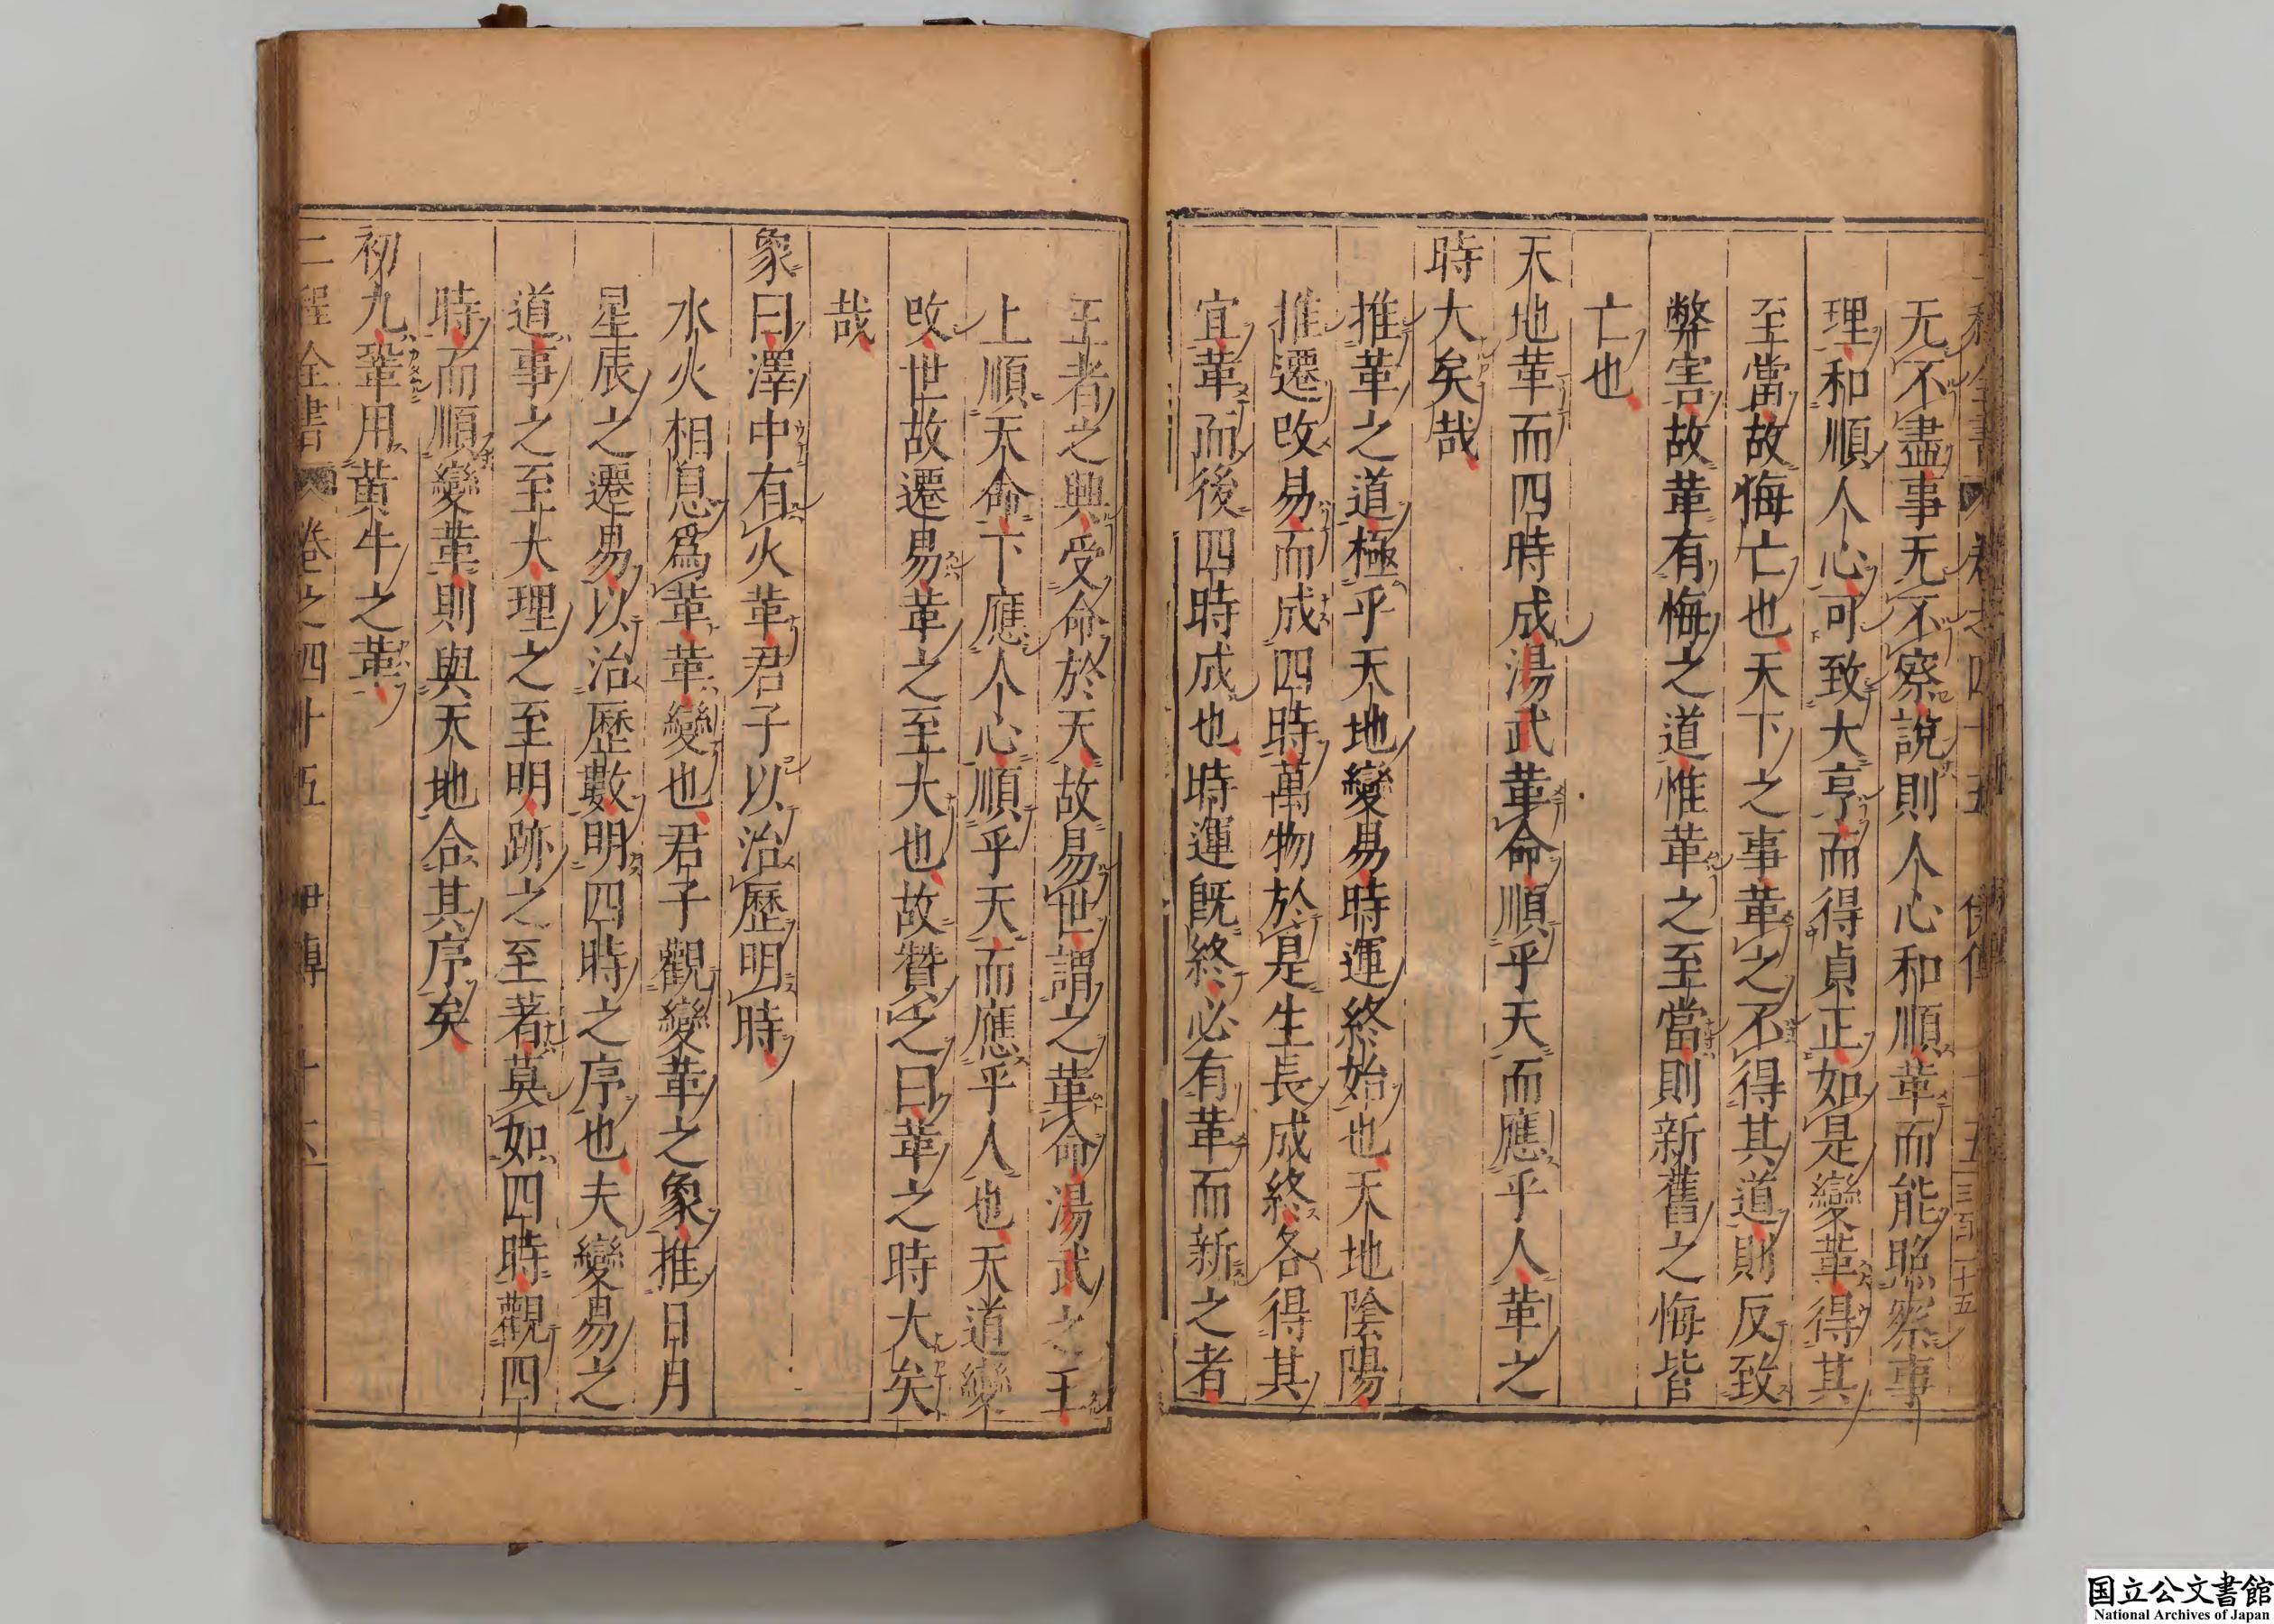 无不盡事无不察說則人心和順革而能照察事
理和順人心可致大亨而得貞正如是變革得其
至當故悔亡也天下之事革之不得其道則反致
弊害故革有悔之道惟革之至當則新舊之悔皆
亡也
天地革而四時成湯武革命順乎天而應乎人革之
時大矣哉
推革之道極乎天地變易時運終始也天地陰陽
推遷改易而成四時萬物於是生長成終各得其
宜革而後四時成也時運既終必有革而新之者
王者之興受命於天故易世謂之革命湯武之王
上順天命下應人心順乎天而應乎人也天道變
改世故遷易革之至大也故贊之曰革之時大矣
哉
象曰澤中有火革君子以治歷明時
水火相息爲革革變也君子觀變革之象推日月
星辰之遷易以治歷數明四時之序也夫變易之
道事之至大理之至明跡之至著莫如四時觀四
時而順變革則與天地合其序矣
初九鞏用黃牛之革
二程全書 卷之四十五
国立公文書館
National Archives of Japan